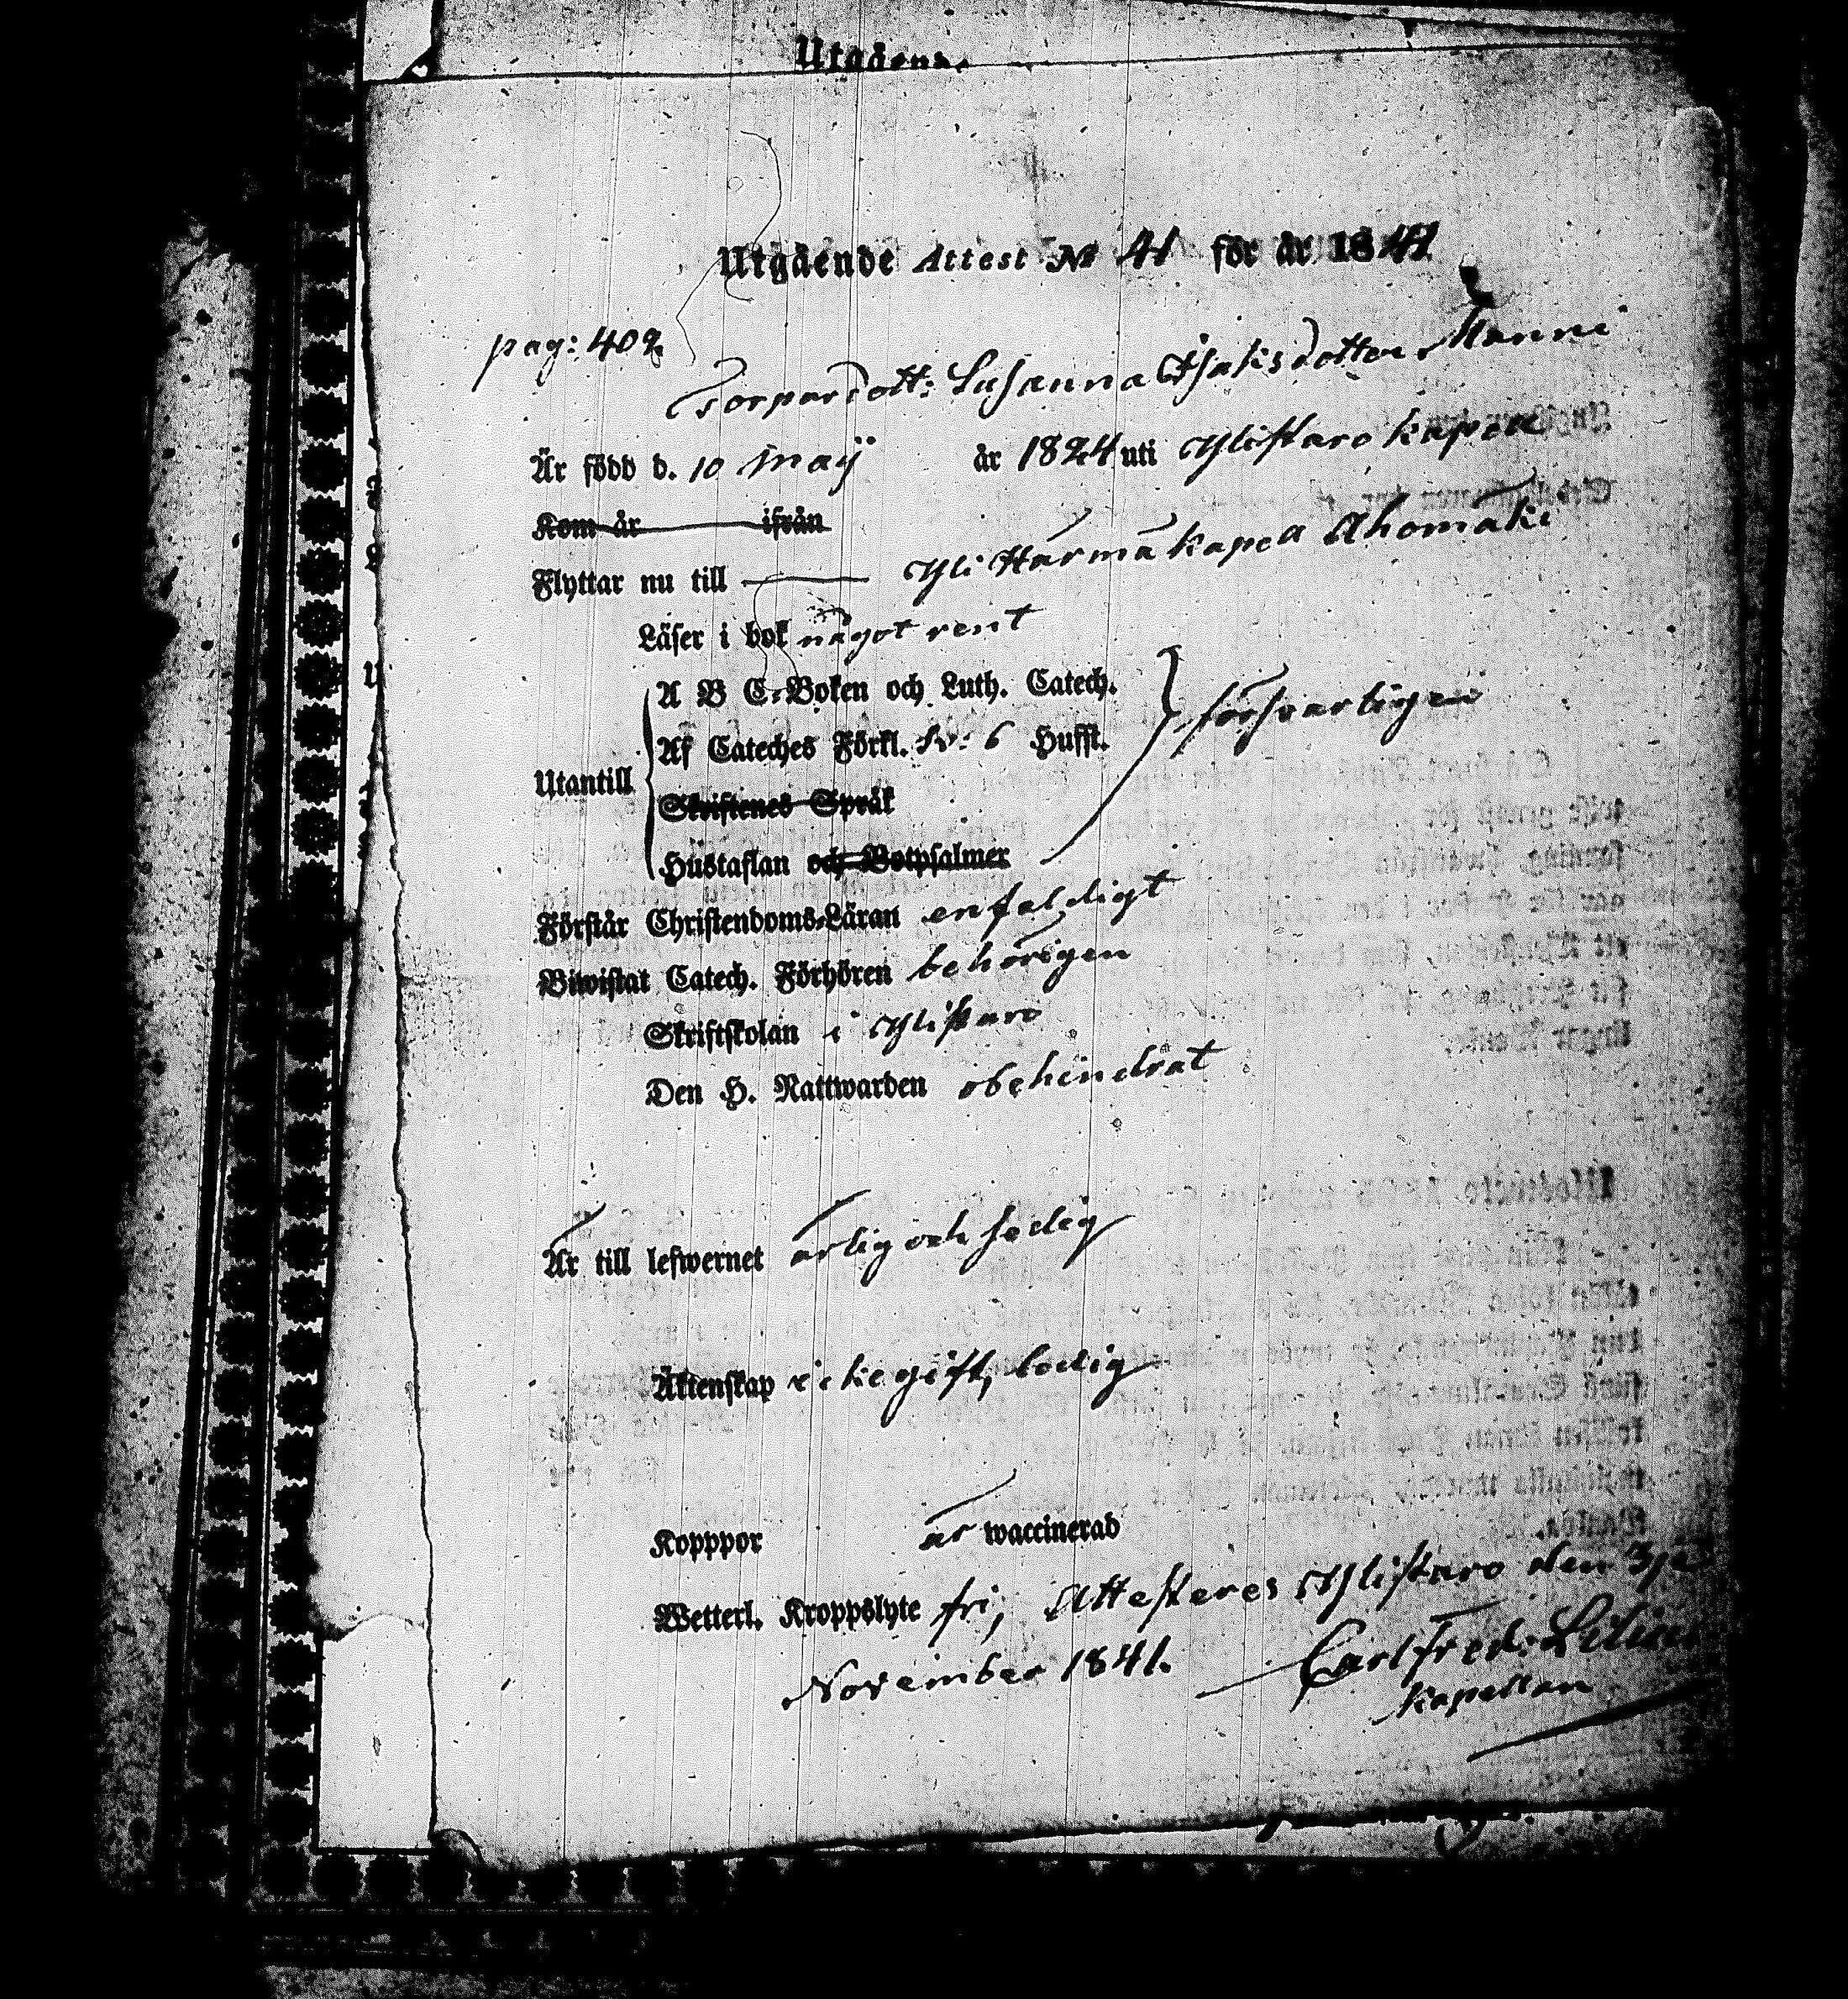 Utgående
Utgående Attest No 41 för år 1841
pag: 402
Torpardott: Susanna Isaksdotter Manni
Är född d. 10 Maÿ år 1824 uti Ylistaro kapell
Kom år ifrån
Flyttar nu till Yli Härmä kapell Ahomäki
Läser i bok något rent
A B C-Boken och Luth. Catech.
Af Cateches Förkl. Sv: 6 Hufst. försvarligen
Utantill
Skriftenes Språk
Hustaflan och Botpsalmer
Förstår Christendoms-Läran enfaldigt
Biwistat Catech. Förhören behörigen
Skriftskolan i Ylistaro
Den H. Nattwarden obehindrat
Är till lefwernet ärlig och sedig
Äktenskap icke gift, ledig
Kopppor är waccinerad
Wetterl. Kroppslyte fri, Attesteres Ylistaro den 3je
November 1841. Carl Fred: Lilius
Kapellan